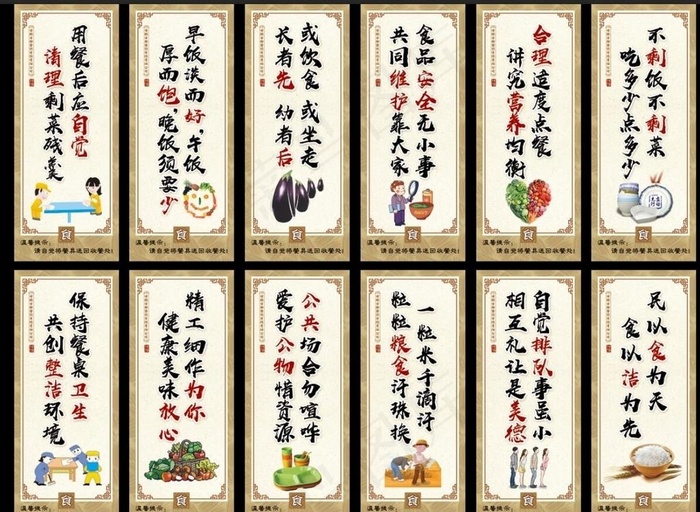 用餐后应自觉
清理剩菜残羹
食
温馨提示:
请自觉将餐具送回收餐处!
早饭淡而好,午饭
厚而饱,晚饭须要少
食
温馨提示:
请自觉将餐具送回收餐处!
或饮食 或坐走
长者先 幼者后
食
温馨提示:
请自觉将餐具送回收餐处!
食品安全无小事
共同维护靠大家
食
温馨提示:
请自觉将餐具送回收餐处!
合理适度点餐
讲究营养均衡
食
温馨提示:
请自觉将餐具送回收餐处!
不剩饭不剩菜
吃多少点多少
食
温馨提示:
请自觉将餐具送回收餐处!
保持餐桌卫生
共创整洁环境
食
温馨提示:
精工细作为你
健康美味放心
食
温馨提示:
公共场合勿喧哗
爱护公物惜资源
食
温馨提示:
一粒米千滴汗
粒粒粮食汗珠换
食
温馨提示:
自觉排队事虽小
相互礼让是美德
食
温馨提示:
民以食为天
食以洁为先
食
温馨提示: